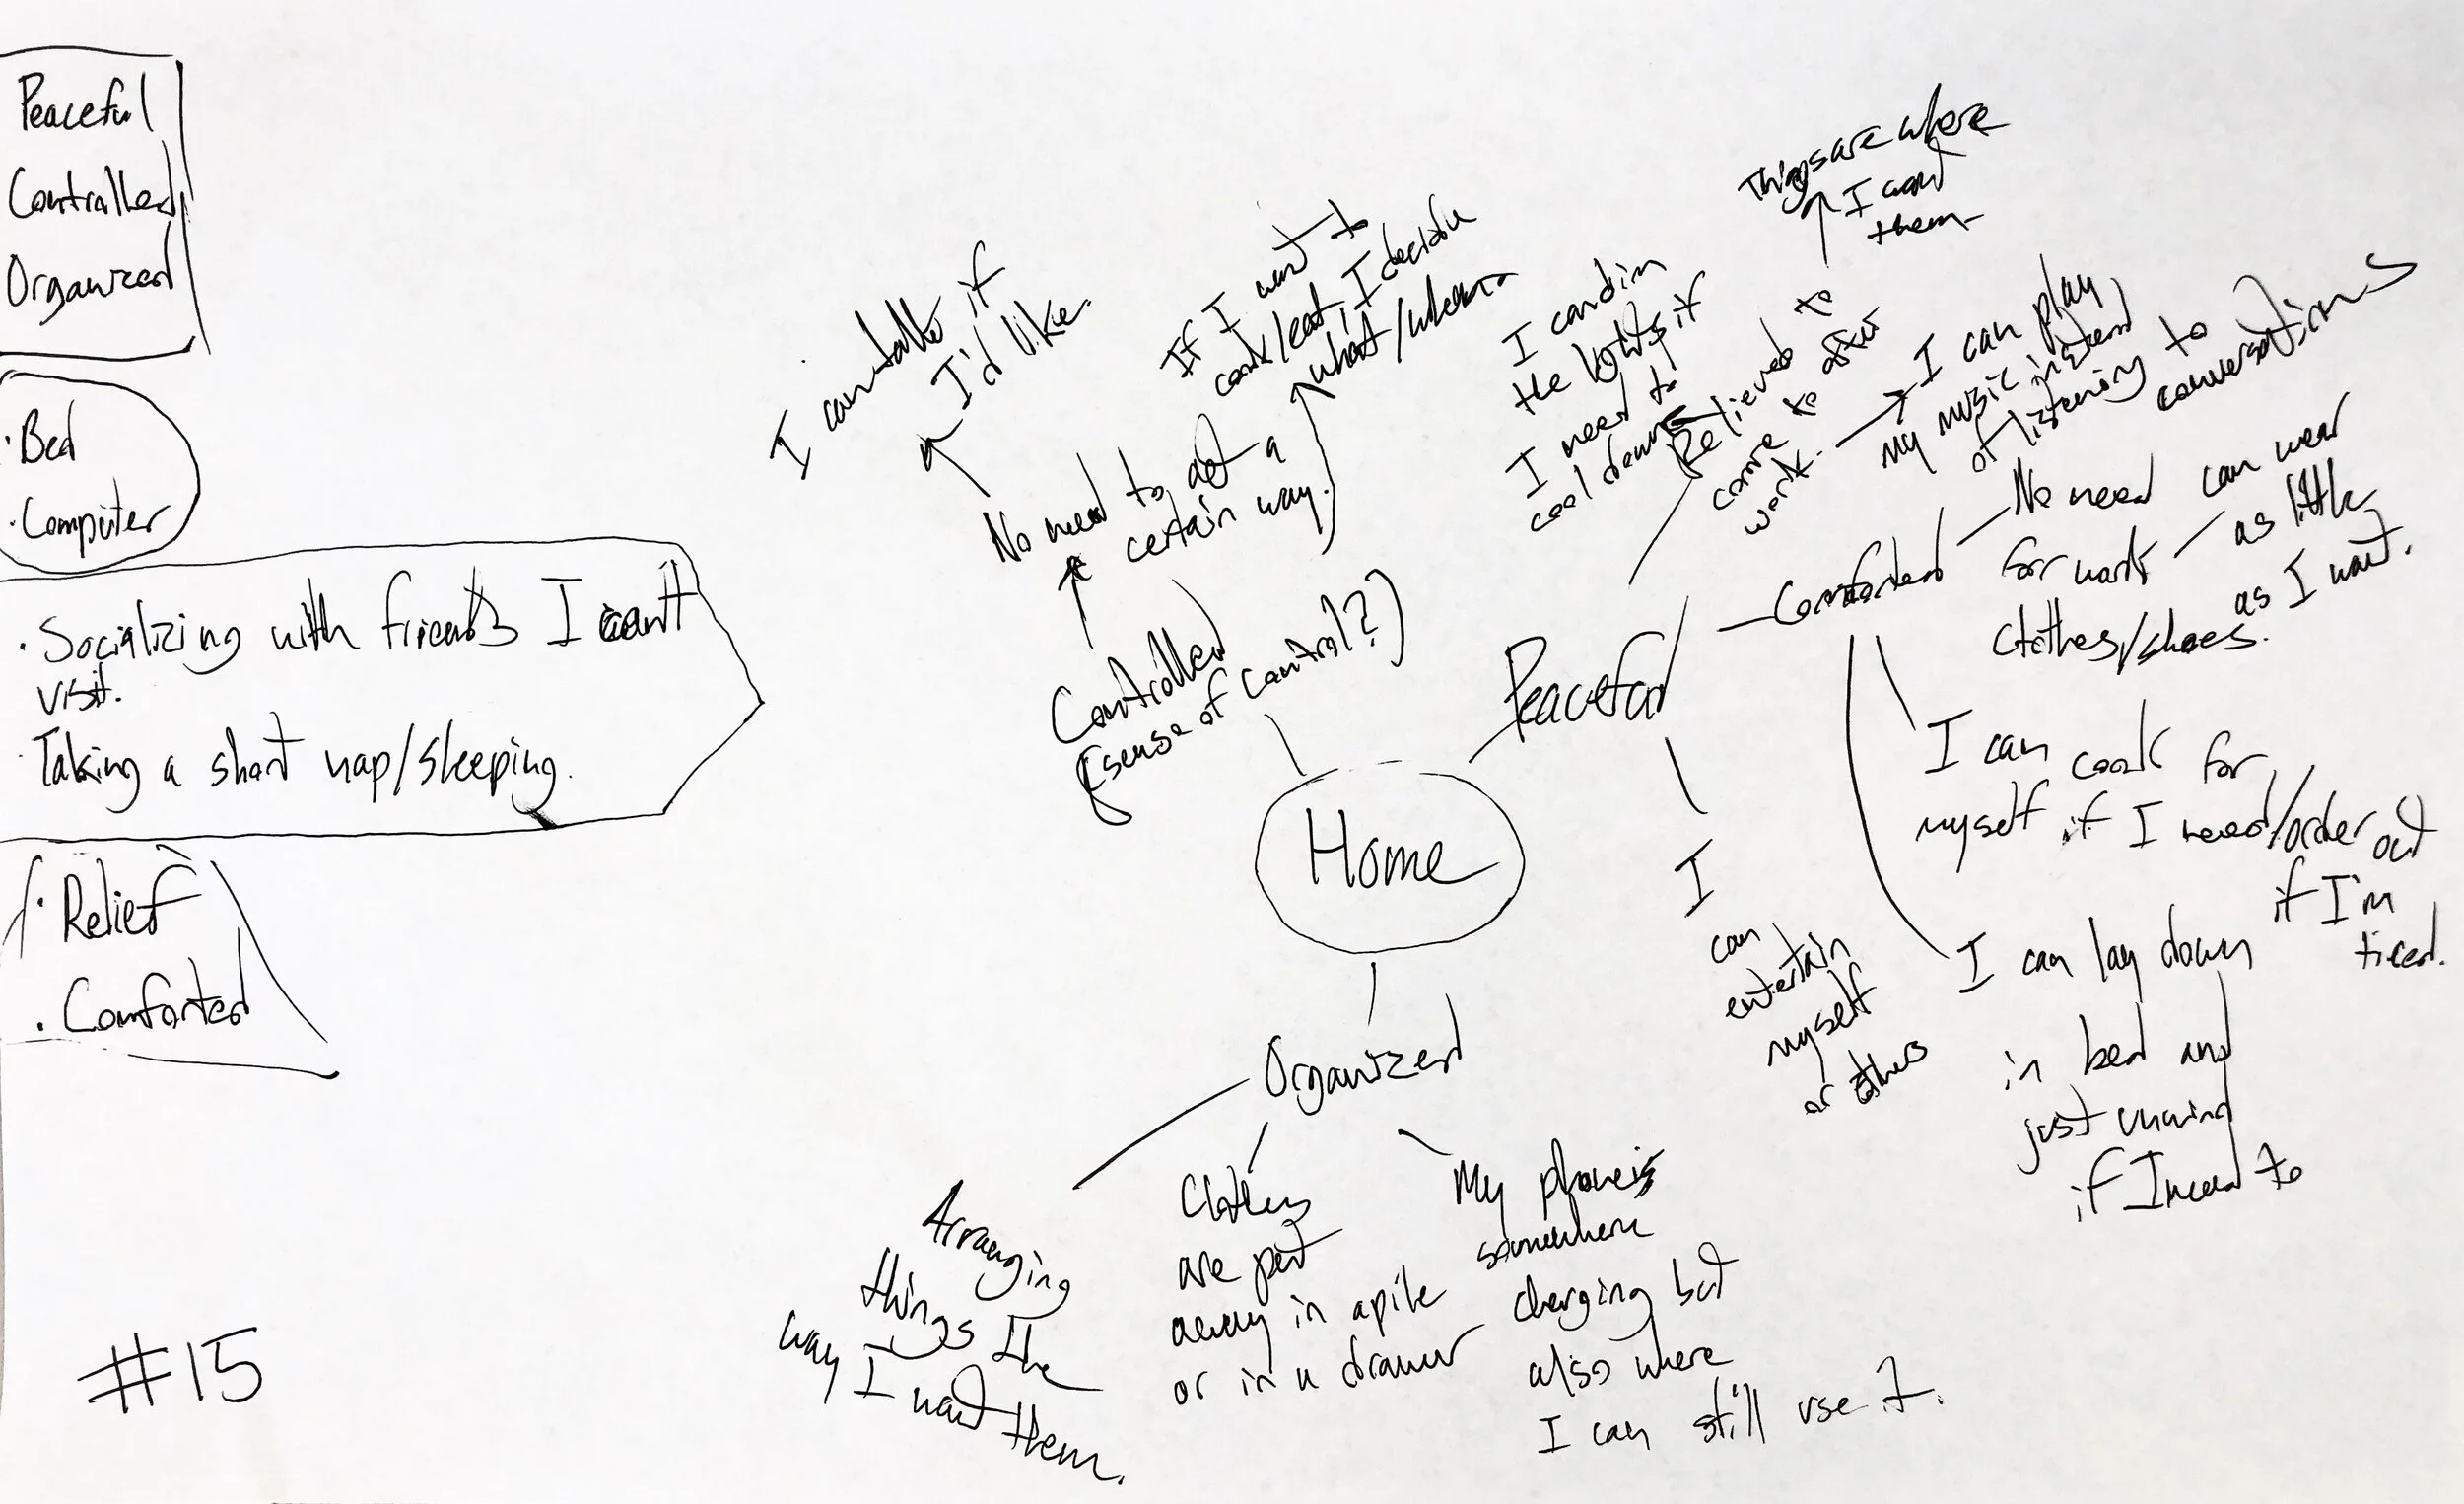 Peaceful
Controlled
Organized
· Bed
· Computer
· Socializing with friends I can't
visit.
· Taking a short nap/sleeping.
· Relief
· Comforted
#15
Home
Controlled
(sense of control?)
No need to act a
certain way.
I can talk if
I'd like.
If I want to
cook/eat, I decide
what/when
Peaceful
Relieved to
come to after
work.
I can dim
the lights if
I need to
cool down
Things are where
I want
them
I can play
my music instead
of listening to
conversations
Comforted
No need
for work
clothes/shoes.
can wear
as little
as I want.
I can cook for
myself if I need/order out
if I'm
tired.
I can lay down
in bed and
just unwind
if I need to
I
can
entertain
myself
or others
Organized
Arranging
things the
way I want them.
Clothes
are put
away in a pile
or in a drawer
My phone is
somewhere
charging but
also where
I can still use it.